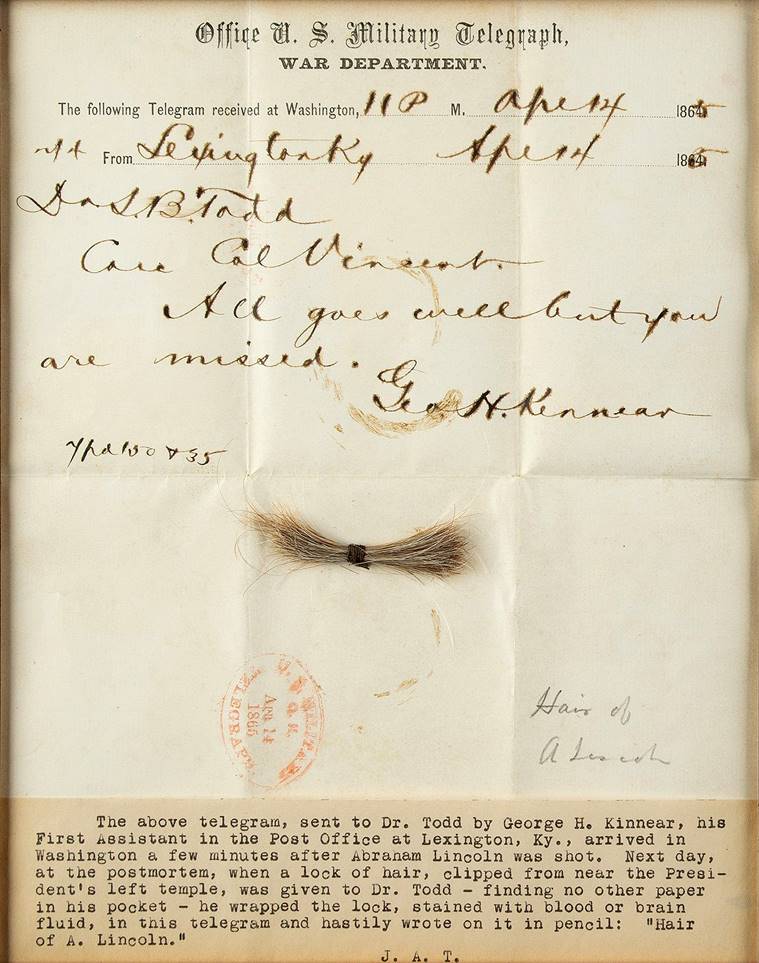 Office U. S. Military Telegraph,
WAR DEPARTMENT.
The following Telegram received at Washington, 11 P M. Apr 14 1865
From Lexington Ky Apr 14 1865
Dr L. B. Todd
Care Col Vincent.
All goes well but you
are missed.
Geo. H. Kinnear
150 & 35
Hair of
A Lincoln
U. S. MILITARY
APR 14
1865
TELEGRAPH
The above telegram, sent to Dr. Todd by George H. Kinnear, his
First Assistant in the Post Office at Lexington, Ky., arrived in
Washington a few minutes after Abraham Lincoln was shot. Next day,
at the postmortem, when a lock of hair, clipped from near the Presi-
dent's left temple, was given to Dr. Todd - finding no other paper
in his pocket - he wrapped the lock, stained with blood or brain
fluid, in this telegram and hastily wrote on it in pencil: "Hair
of A. Lincoln."
J. A. T.